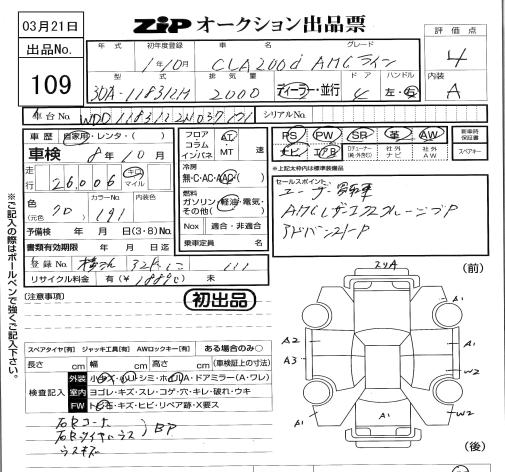 03月21日
ZIP オークション出品票
出品No.
109
評価点
4
内装
A
年式 初年度登録 車名 グレード
1年10月 CLA200d AMGライン
型式 排気量 ドア ハンドル
3DA-118312M 2000 ディーラー・並行 4 左・右
車台No.
シリアルNo.
車歴 自家用・レンタ・( )
車検 8年10月
走行 26,006 キロ マイル
色 (元色) クロ カラーNo. 191 内装色
予備検 年 月 日(3・8)No.
書類有効期限 年 月 日迄
登録No.
リサイクル料金 有(¥ ) 未
フロア コラム インパネ AT・MT 速
冷房
無・C・AC・AAC
燃料
ガソリン・軽油・電気・その他( )
Nox 適合・非適合
乗車定員 名
PS PW SR 革 AW
ナビ エアB TVチューナー(地・外及B) 社外ナビ 社外AW
新車時保証書
スペアキー
※上記太枠内は標準装備品
セールスポイント
ユーザー買取車
AMGレザーエクスクルーシブP
アドバンスドP
※ご記入の際はボールペンで強くご記入下さい。
(注意事項)
初出品
スペアタイヤ[有] ジャッキ工具[有] AWロックキー[有] ある場合のみ○
長さ cm 幅 cm 高さ cm (車検証上の寸法)
検査記入
外装 小キズ・凹・シミ・ホイルA・ドアミラー(A・ワレ)
内装 ヨゴレ・キズ・スレ・コゲ・穴・キレ・破れ・ウキ
FW トビ石・キズ・ヒビ・リペア跡・X要ス
BP
スリA
(前)
A1
A2
A1
A3
W2
A1
A1
W2
(後)